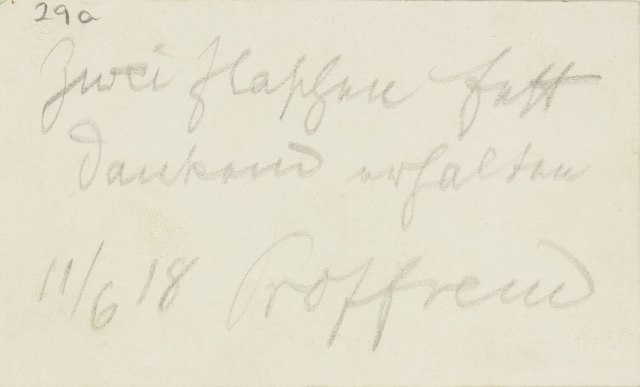 29a
Zwei Flaschen Sekt
dankend erhalten
11/6 18